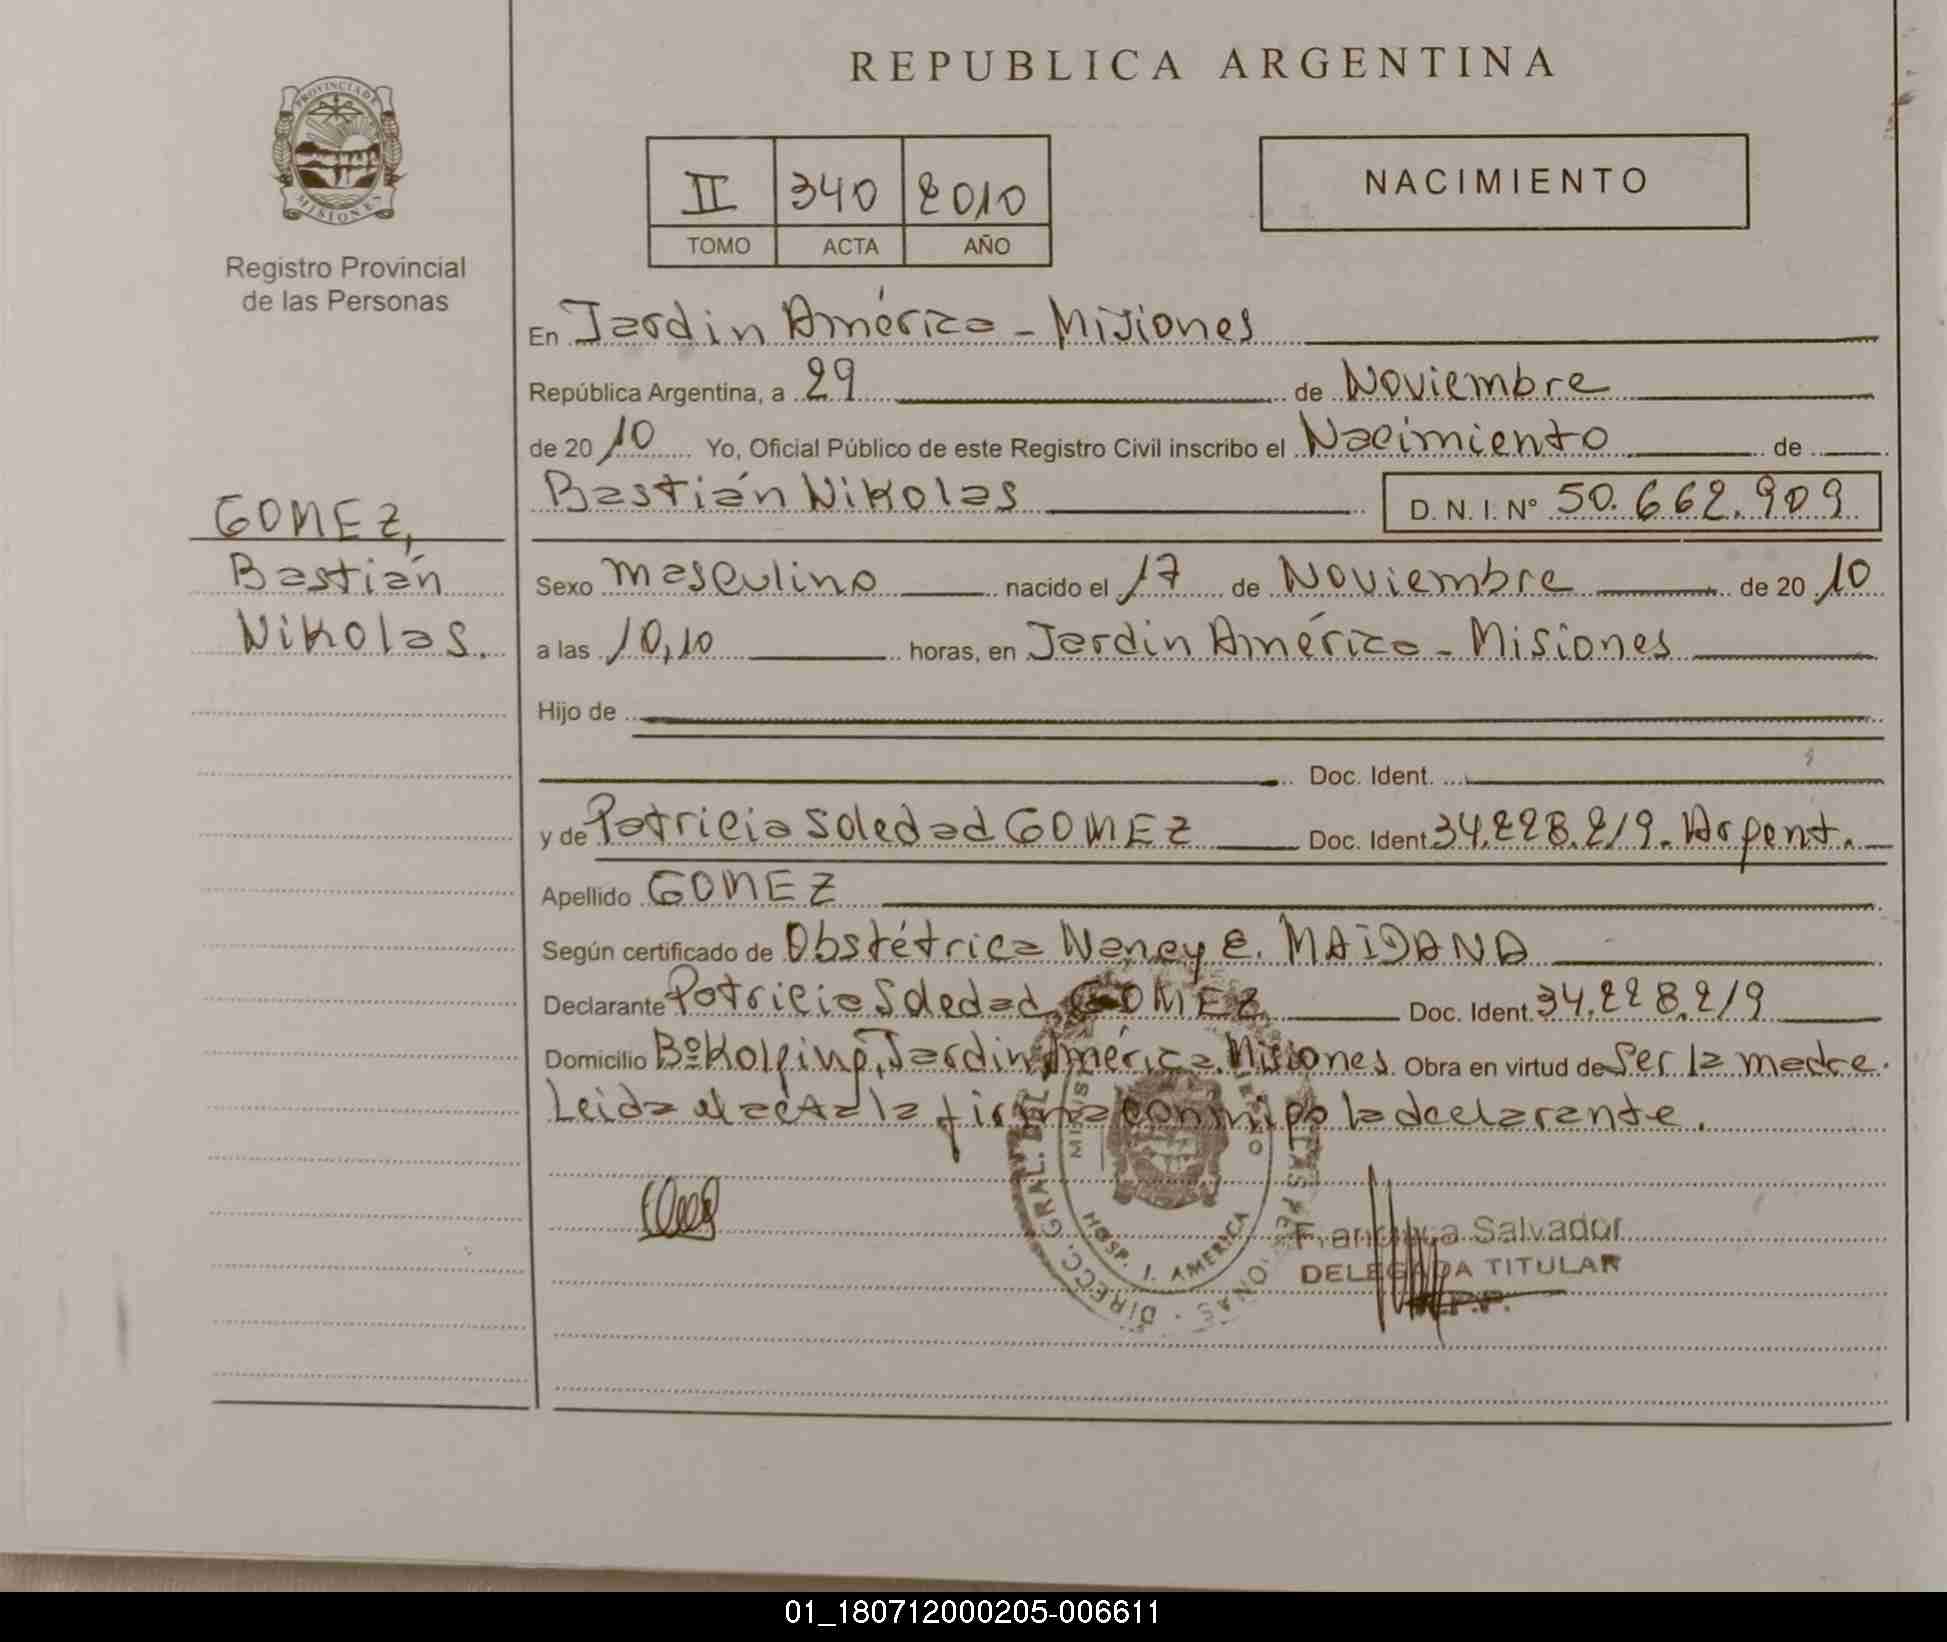 REPUBLICA ARGENTINA
PROVINCIA DE
MISIONES
Registro Provincial
de las Personas
II 340 2010
TOMO ACTA AÑO
NACIMIENTO
En Jardin América - Misiones
República Argentina, a 29 de Noviembre
de 2010 Yo, Oficial Público de este Registro Civil inscribo el Nacimiento de
Bastián Nikolas D. N. I. N° 50.662.909
GOMEZ,
Bastián
Nikolas.
Sexo masculino nacido el 17 de Noviembre de 2010
a las 10,10 horas, en Jardin América - Misiones
Hijo de
Doc. Ident.
y de Patricia Soledad GOMEZ Doc. Ident. 34.228.219. Argent.
Apellido GOMEZ
Según certificado de Obstétrica Nancy E. MAIDANA
Declarante Patricia Soledad GOMEZ Doc. Ident. 34.228.219
Domicilio Bº Kolping, Jardin América. Misiones. Obra en virtud de Ser la madre.
Leida el acta la firma conmigo la declarante.
DIRECC. GRAL. DEL
HOSP. J. AMERICA
Salvador
DELEGADA TITULAR
01_180712000205-006611